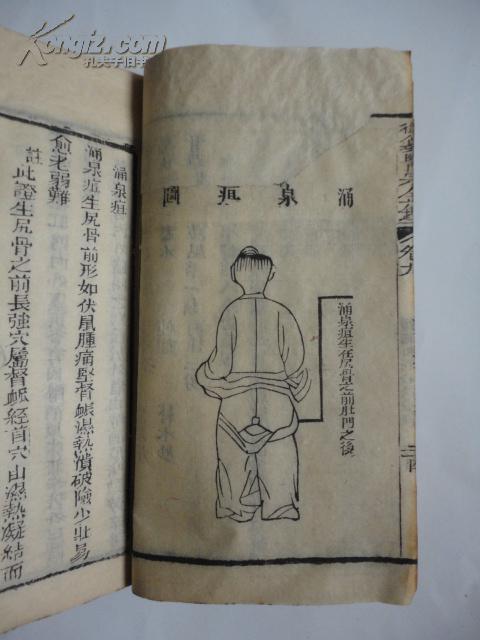 卷九
涌泉疽圖
涌泉疽生在尻骨之前肛門之後
涌泉疽
涌泉疽生尻骨前形如伏鼠腫痛堅督脈濕熱潰破險少壯易
愈老弱難
註此證生尻骨之前長強穴屬督脈經首穴由濕熱凝結而
Kongfz.com
孔夫子旧书网